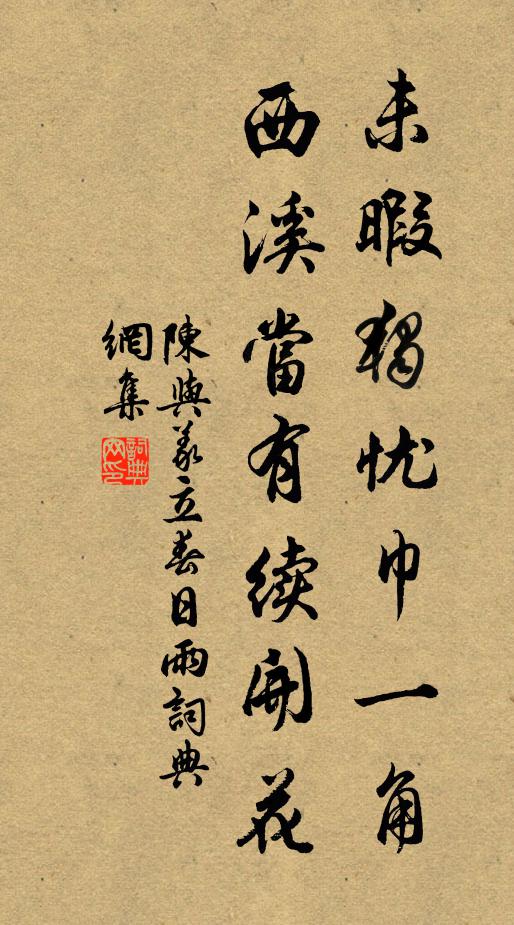 未暇獨忧巾一角
西溪當有續開花
陳與義立春日雨詞典
網集
詞典
网印